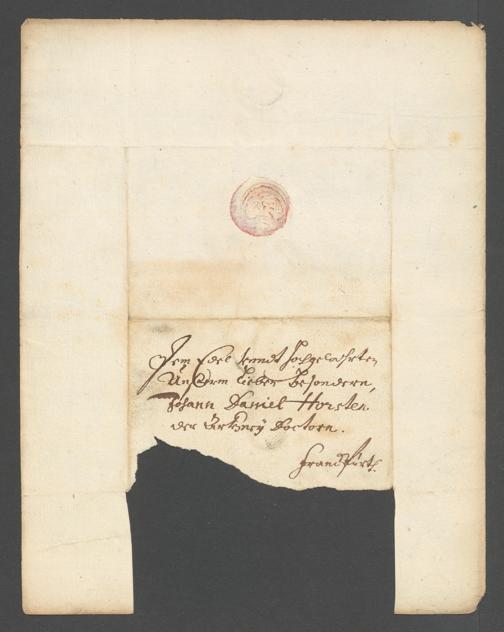 Dem Edel unndt Hochgelahrten
Unßerm lieben besondern,
Johann Daniel Horsten
der Artzney Doctorn.
Franckfurth.